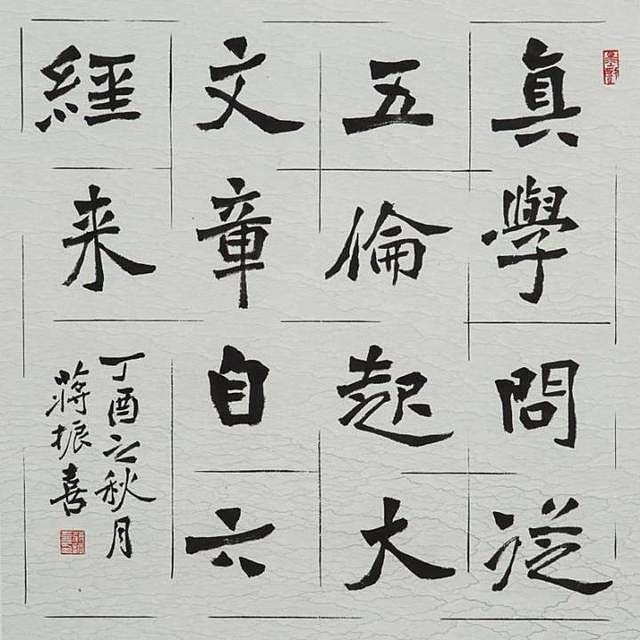 真學問從
五倫起大
文章自六
經来
丁酉之秋月
蔣振喜